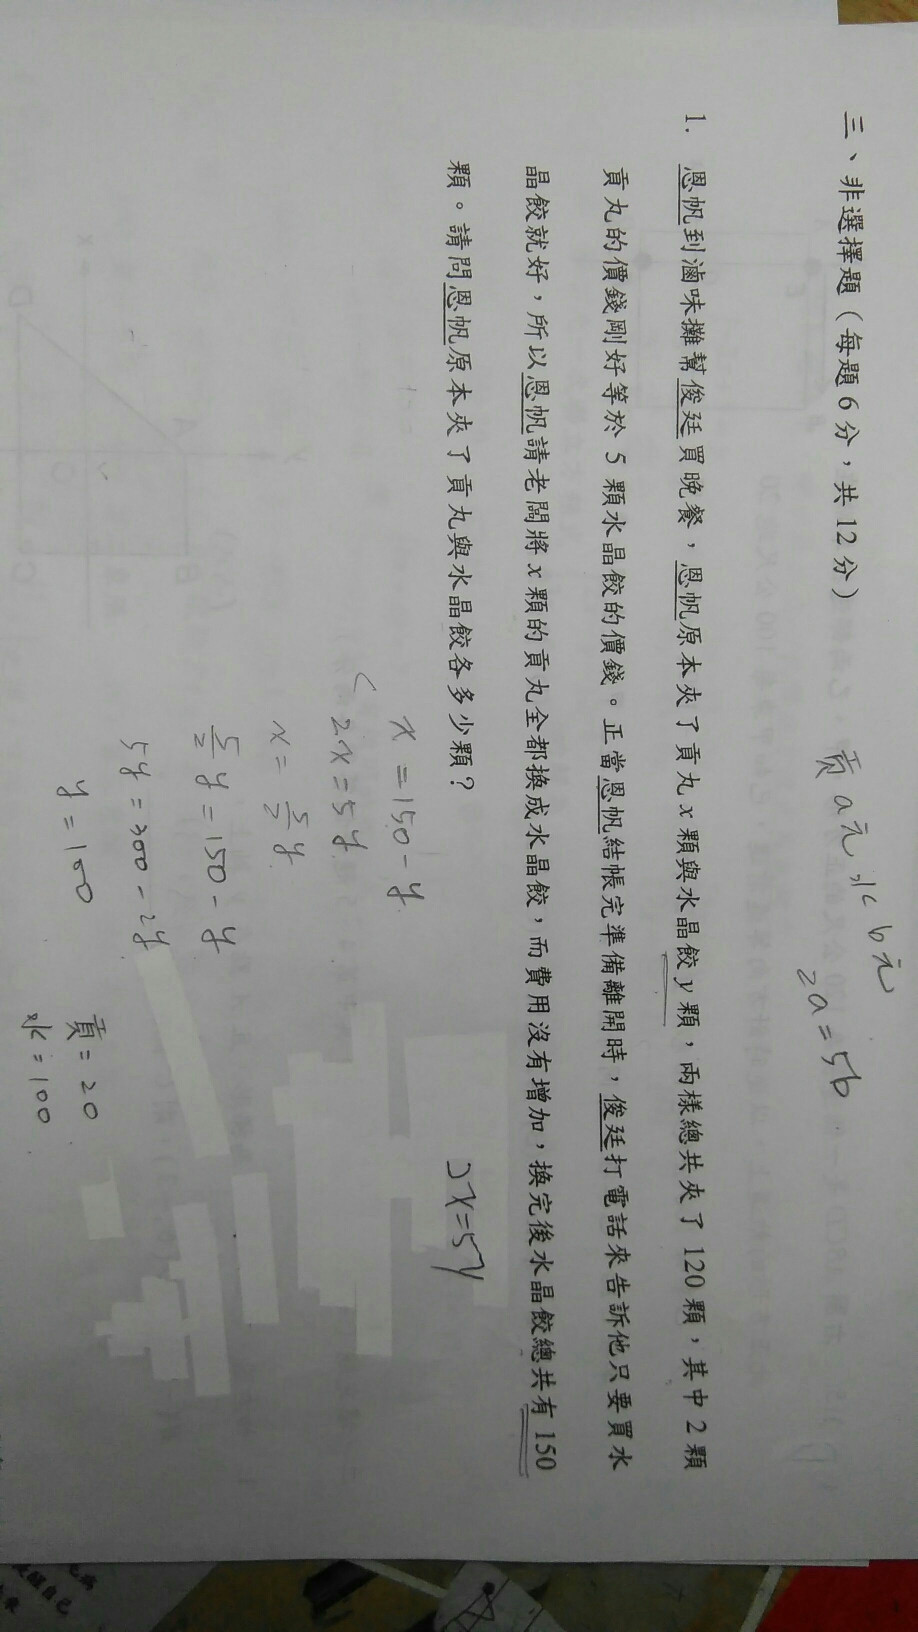 三、非選擇題（每題6分，共12分）
貢a元,水b元
2a=5b
1. 恩帆到滷味攤幫俊廷買晚餐，恩帆原本夾了貢丸x顆與水晶餃y顆，兩樣總共夾了120顆，其中2顆
貢丸的價錢剛好等於5顆水晶餃的價錢。正當恩帆結帳完準備離開時，俊廷打電話來告訴他只要買水
晶餃就好，所以恩帆請老闆將x顆的貢丸全都換成水晶餃，而費用沒有增加，換完後水晶餃總共有150
顆。請問恩帆原本夾了貢丸與水晶餃各多少顆？
2x=5y
x=150-y
2x=5y
x=5/2y
5/2y=150-y
5y=300-2y
y=100
貢=20
水=100